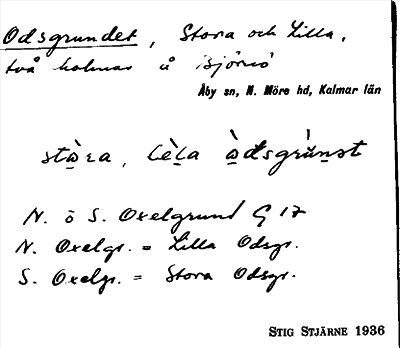 Odsgrundet, Stora och Lilla,
två holmar å
Åby sn, N. Möre hd, Kalmar län
stɯ̀ra, lèla ɯ̀dsgrùnst
N. o S. Oxelgrund G 17
N. Oxelgr. = Lilla Odsgr.
S. Oxelgr. = Stora Odsgr.
STIG STJÄRNE 1936